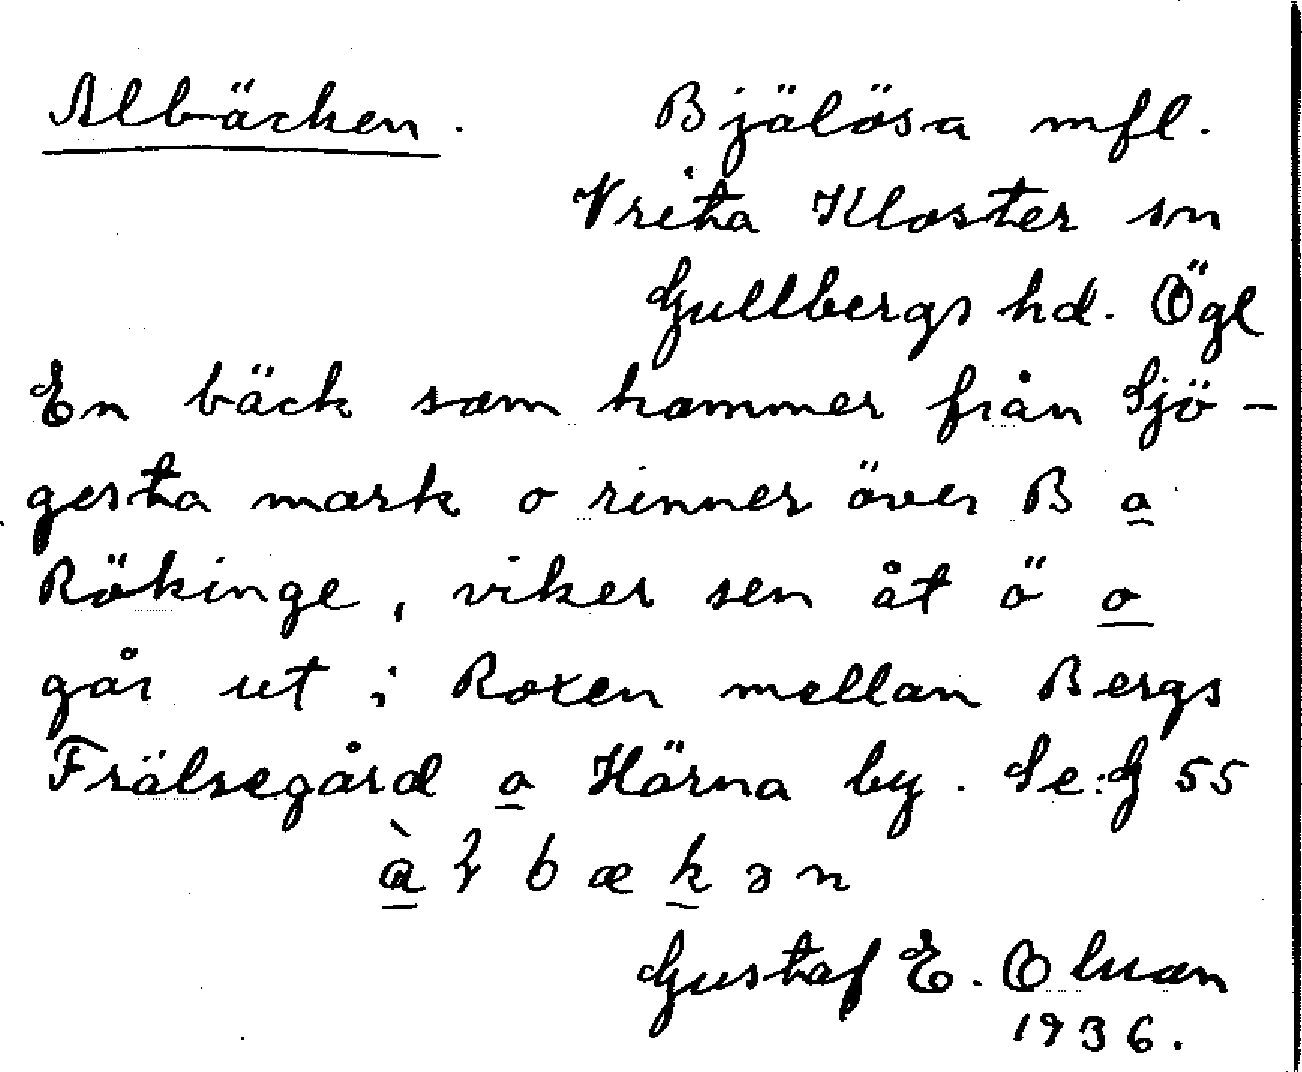 Albäcken. Bjälösa mfl.
Vreta Kloster sn
Gullbergs hd. Ögl
En bäck som kommer från Sjö-
gesta mark o rinner över B o
Rökinge, viker sen åt ö o
går ut i Roxen mellan Bergs
Frälsegård o Härna by. Se: G 55
bækən
Gustaf E. Olsson
1936.